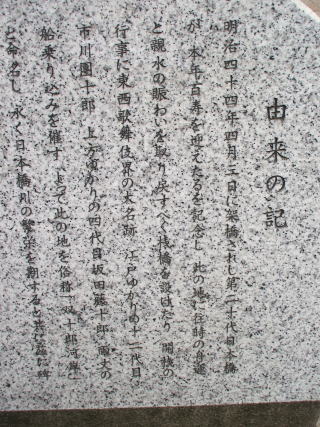 由来の記
明治四十四年四月三日に架橋されし第二十代日本橋
が 本年百寿を迎えたるを記念し 此の地に往時の舟運
と親水の賑わいを取り戻すべく桟橋を設けたり 開橋の
行事に東西歌舞伎界の大名跡 江戸ゆかりの十二代目
市川團十郎 上方ゆかりの四代目坂田藤十郎 両丈の
船乗り込みを催す よって此の地を俗称「双十郎河岸」
と命名し 永く日本橋川の繁栄を期すると共に